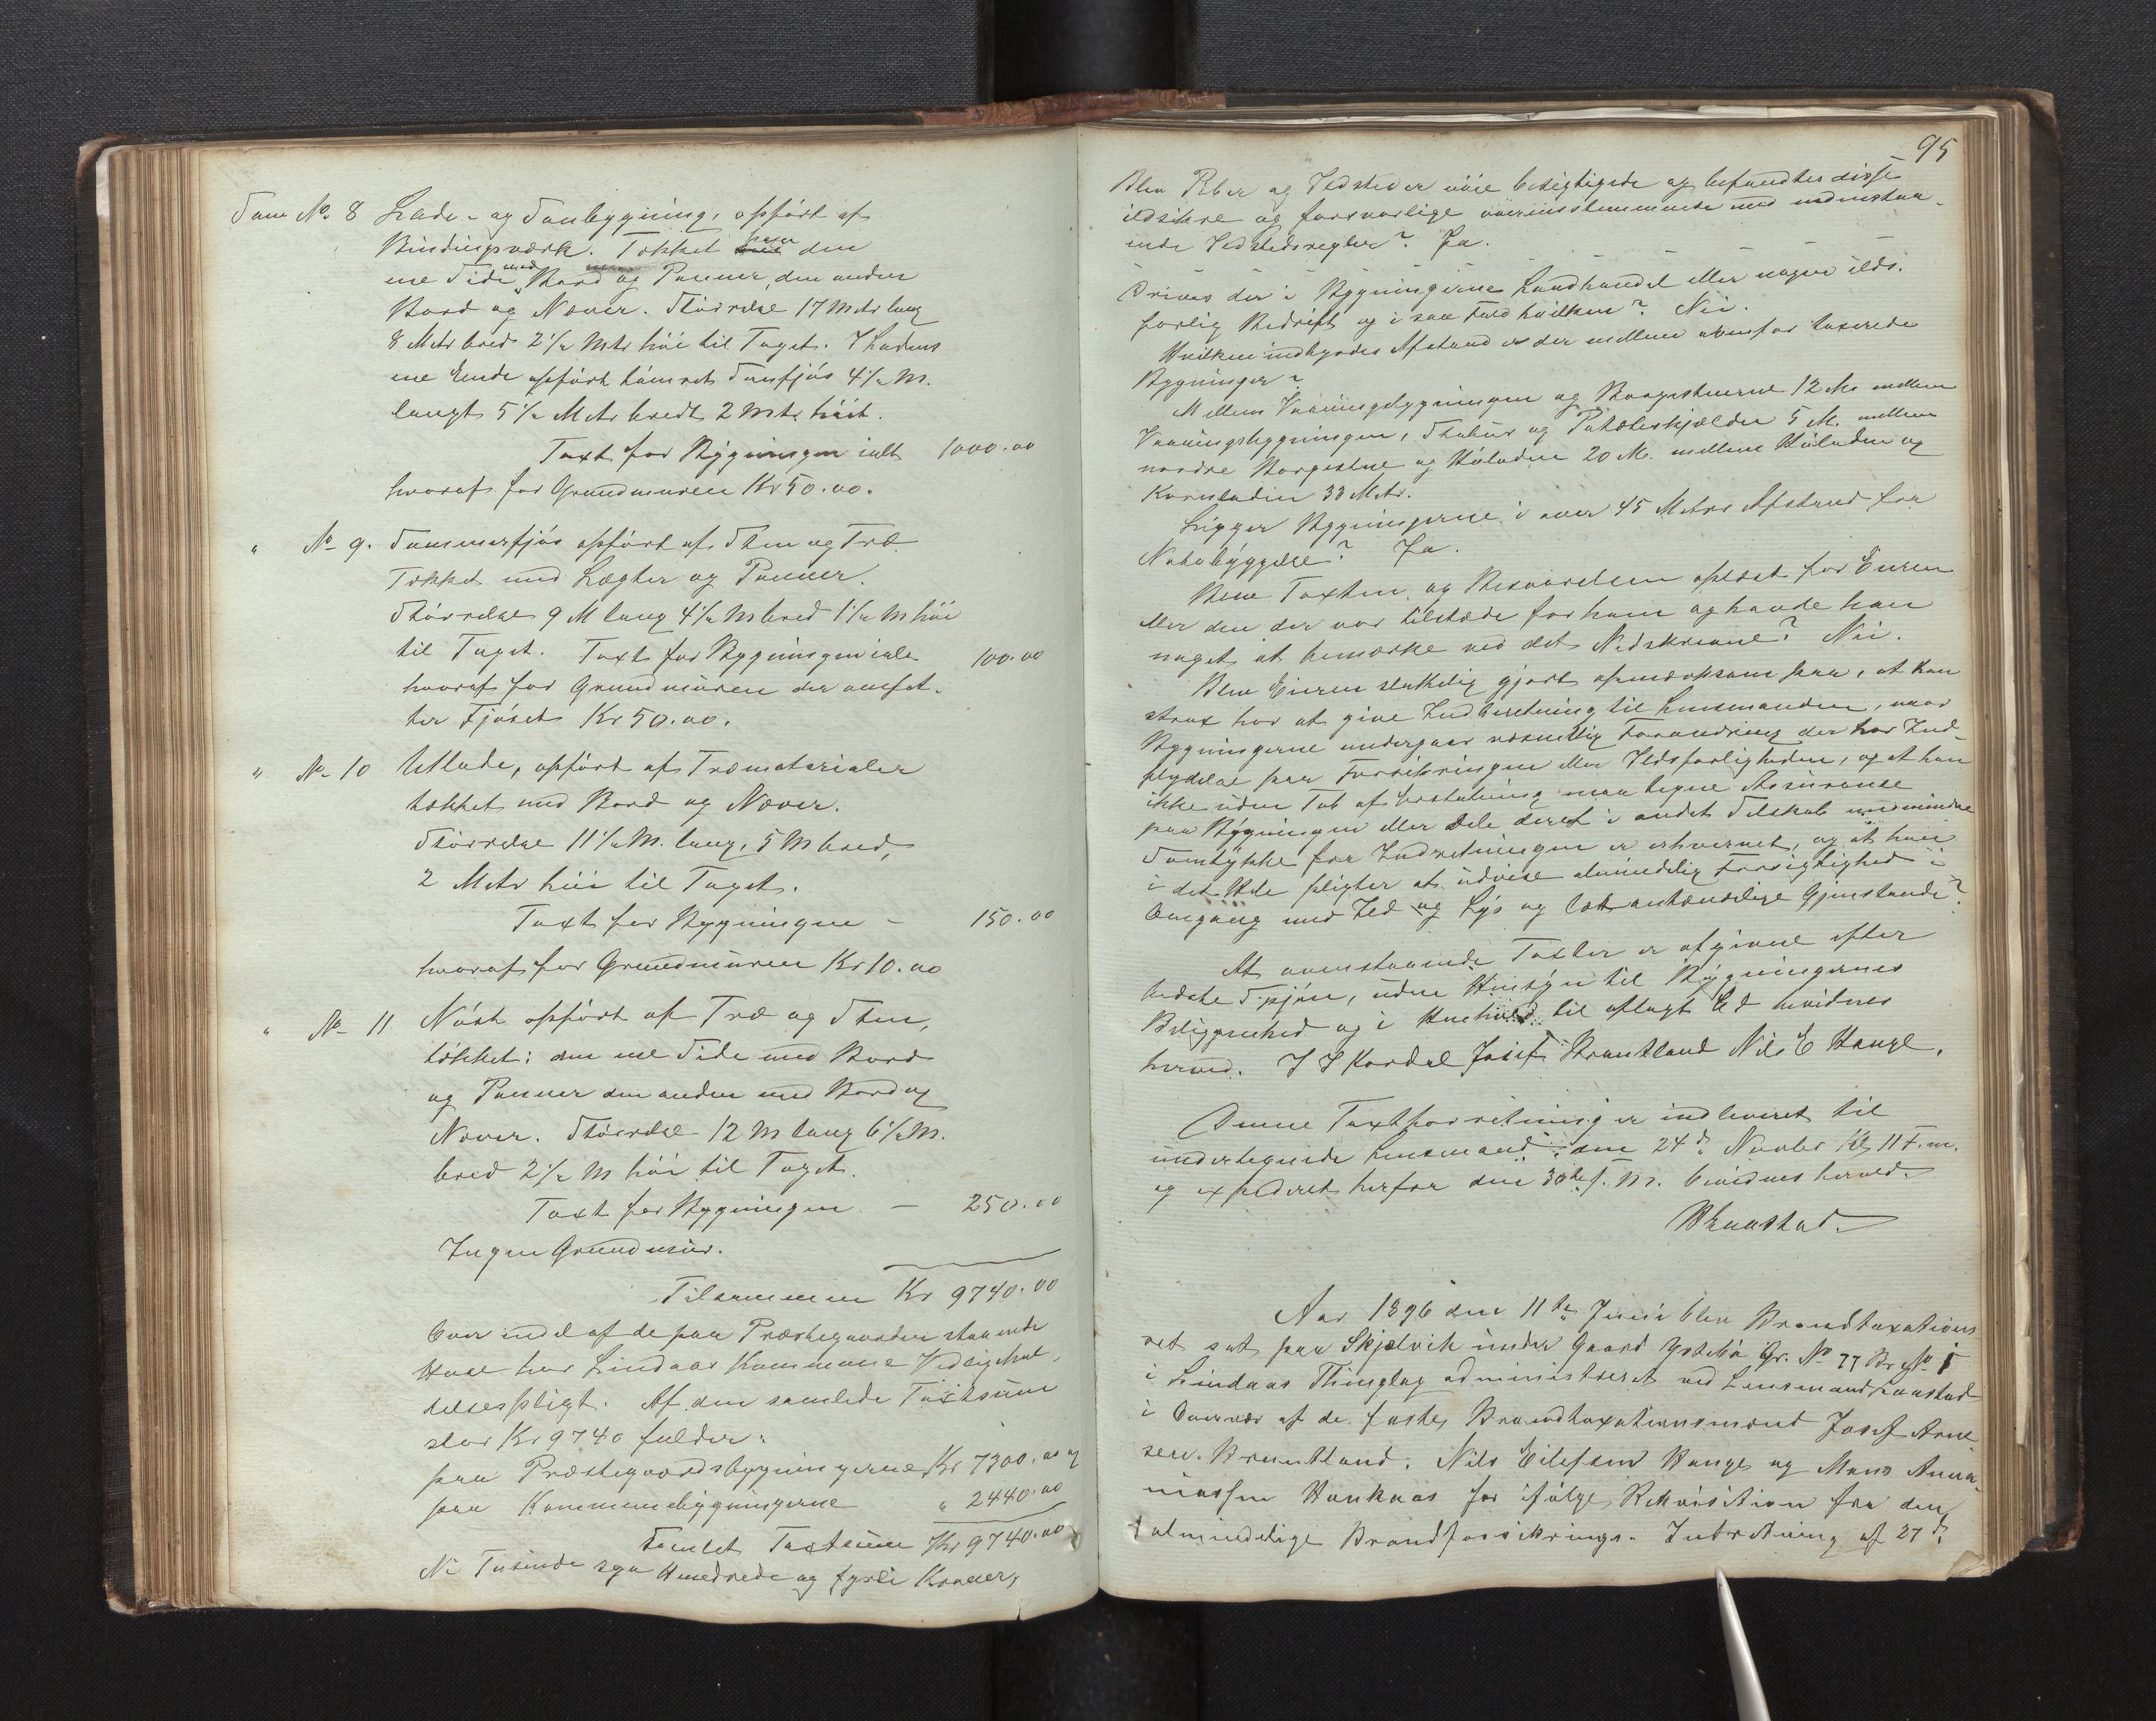 Sam No 8 Lade- og Sambygning, opført af
Bindingsværk. Tækket paa den
ene Side med Bord og Panner, den anden
Bord og Næver. Størrelse 17 Metr lang
8 Metr bred 2 1/2 Mtr høi til Taget. I Ladens
ene Ende opført tømret Sauefjøs 4 1/2 M.
langt 5 1/2 Metr bredt 2 Mtr høit.
Taxt for Bygningen ialt 1000.00
hvoraf for Grundmuren Kr 50.00.
" No 9. Sommerfjøs opført af Sten og Træ.
Tækket med Lægter og Panner.
Størrelse 9 M lang 4 1/2 M bred 1 1/2 M høi
til Taget. Taxt for Bygningen ialt 100.00
hvoraf for Grundmuren der omfat-
ter Fjøset Kr 50.00.
" No 10 Utlade, opført af Træmaterialer
tækket med Bord og Næver.
Størrelse 11 1/2 M. lang, 5 M bred,
2 Metr høi til Taget.
Taxt for Bygningen - 150.00
hvoraf for Grundmuren Kr 10.00
" No 11 Nøst opført af Træ og Sten,
tækket: den ene Side med Bord
og Panner den anden med Bord og
Næver. Størrelse 12 M lang 6 1/2 M.
bred 2 1/2 M høi til Taget.
Taxt for Bygningen - 250.00
Ingen Grundmur.
Tilsammen Kr 9740.00
Over endel af de paa Præstegaarden staaende
Huse har Lindaas Kommune Vedligehol-
delsespligt. Af den samlede Taxtsum
stor Kr 9740 falder:
paa Præstegaardsbygningerne Kr 7300.00 og
paa Kommunebygningerne " 2440.00
Samlet Taxtsum Kr 9740.00
Ni Tusinde syv Hundrede og fyrti Kroner,
95
Blev Piber og Ildsteder nøie besigtigede og befandtes disse
ildsikre og forsvarlige overensstemmende med nedenstaa-
ende Ildstedsregler? Ja.
Drives der i Bygningerne Landhandel eller nogen ilds-
farlig Bedrift og i saa Fald hvilken? Nei.
Hvilken indbyrdes Afstand er der mellem ovenfor taxerede
Bygninger?
Mellem Vaaningsbygningen og Borgestuerne 12 M. mellem
Vaaningsbygningen, Stabur og Potetkjælder 5 M. mellem
nordre Borgestue og Høladen 20 M. mellem Høladen og
Kornladen 33 Metr.
Ligger Bygningerne i over 45 Meters Afstand fra
Nabobyggelse? Ja.
Blev Taxten og Besvarelsen oplæst for Eieren
eller den der var tilstæde for ham og havde han
noget at bemærke ved det Nedskrevne? Nei.
Blev Eieren slutelig gjort opmærksom paa, at han
strax har at give Indberetning til Lensmanden, naar
Bygningerne undergaar væsentlig Forandring der har Ind-
flydelse paa Forsikringen eller Ildsfarligheden, og at han
ikke uden Tab af Erstatning maa tegne Assurance
paa Bygningen eller Dele deraf i andet Selskab medmindre
Samtykke fra Indretningen er erhvervet, og at han
i det Hele pligter at udvise almindelig Forsigtighed i
Omgang med Ild og Lys og let antændelige Gjenstande?
At ovenstaaende Taxter er afgivne efter
bedste Skjøn, uden Hensyn til Bygningernes
Beliggenhed og i Henhold til aflagt Ed bevidnes
herved. I I Kordal Josef Brundtland Nils E Hauge.
Denne Taxtforretning er indleveret til
undertegnede Lensmand den 24de Novber Kl 11 F.m.
og expederet herfra den 30te s. M. bevidnes herved.
Aar 1896 den 11te Juni blev Brandtaxations
ret sat paa Skjelvik under Gaard Ystebø Gr. No 77 Br No 1
i Lindaas Thinglag administreret ved Lensmand
i Overvær af de faste Brandtaxationsmænd Josef Arne-
sen Brundtland, Nils Eilefsen Hauge og Mons
Haukaas for ifølge Rekvisition fra den
almindelige Brandforsikrings-Indretning af 27de